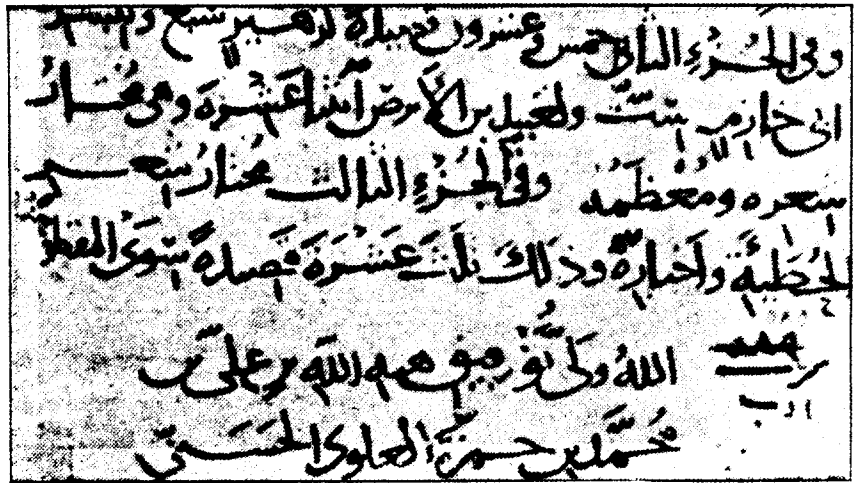 وفى الجُزءِ الثانى خمس وعشرون قصيدة لزهير سبع ولبشر
ابى خازم سِتٌّ ولعَبِيد بن الأَبرص اثنتا عَشْرَة وهى مُختارُ
شعره ومُعظَمُه وفى الجُزءِ الثالث مُختارُ شعر
الحُطَيئَة وأخبارُهُ وذلك ثلثَ عَشْرَةَ قصيدةً سِوَى المقطو
اللهُ ولىُّ توفيق هبه اللهِ بن علىّ بن
مُحَمَّد بن حمزةَ العلوى الحَسَنىّ